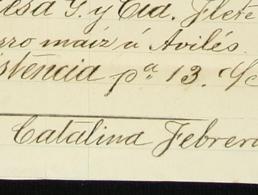 esa G. y Cia. Flete
rro maiz á Avilés.
stencia pª 13.
Catalina Febrero